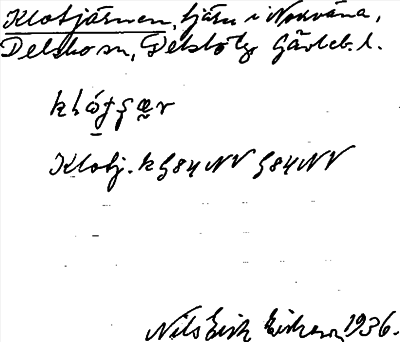 Klotjärnen, tjärn i Norväna,
Delsbo sn, Delsbo tg Gävleb. l.
Klotj. k G84NV G84NV
Nils Erik Erikson 1936.